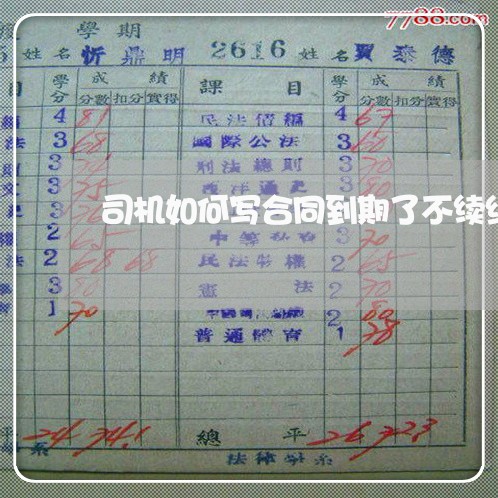 7788.com
學期
姓名 忻鼎明 2616 姓名 賈泰德
目 學分 成績 課目 學分 成績
分數 扣分 實得 分數 扣分 實得
4 81 民法債編 4 67
法 3 68 國際公法 3 60
3 刑法總則 3 70
3 75 西洋通史 3 80
司机如何写合同到期了不续
2 65 3 70
法 2 68 68 民法物權 2 65
3 80 憲法 2 70
育 1 70 2 80
普通體育 1 78
平 24 74.1 總平 26 72.3
系 法律學系